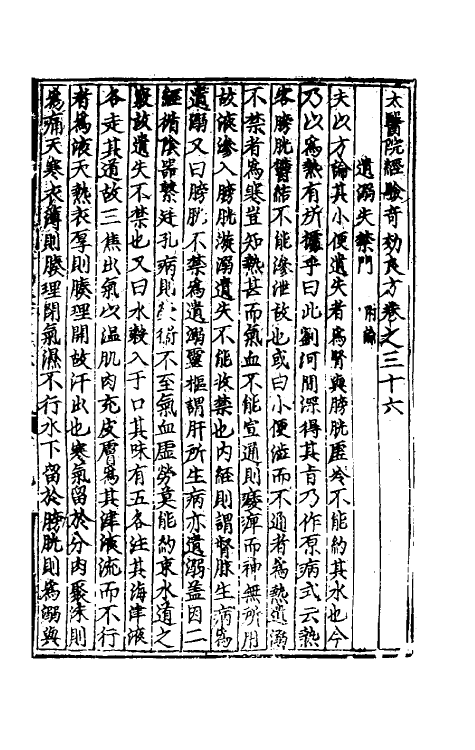 太醫院經驗奇効良方卷之三十六
遺溺失禁門 附論
夫以方論其小便遺失者爲腎與膀胱虛冷不能約其水也今
乃以爲熱有所據乎曰此劉河間深得其旨乃作原病式云熱
客膀胱鬱結不能滲泄故也或曰小便澁而不通者爲熱遺溺
不禁者爲寒豈知熱甚而氣血不能宣通則痿痺而神無所用
故液滲入膀胱溺遺失不能收禁也内經則謂督脉生病爲
遺溺又曰膀胱不禁爲遺溺靈樞謂肝所生病亦遺溺盖因二
經循陰器繫廷孔病則榮衛不至氣血虛勞莫能約束水道之
竅故遺失不禁也又曰水穀入于口其味有五各注其海津液
各走其道故三焦出氣以温肌肉充皮膚爲其津液流而不行
者爲液天熱衣厚則腠理開故汗出也寒氣留於分肉聚沫則
爲痛天寒衣薄則腠理閉氣濕不行水下留於膀胱則爲溺與